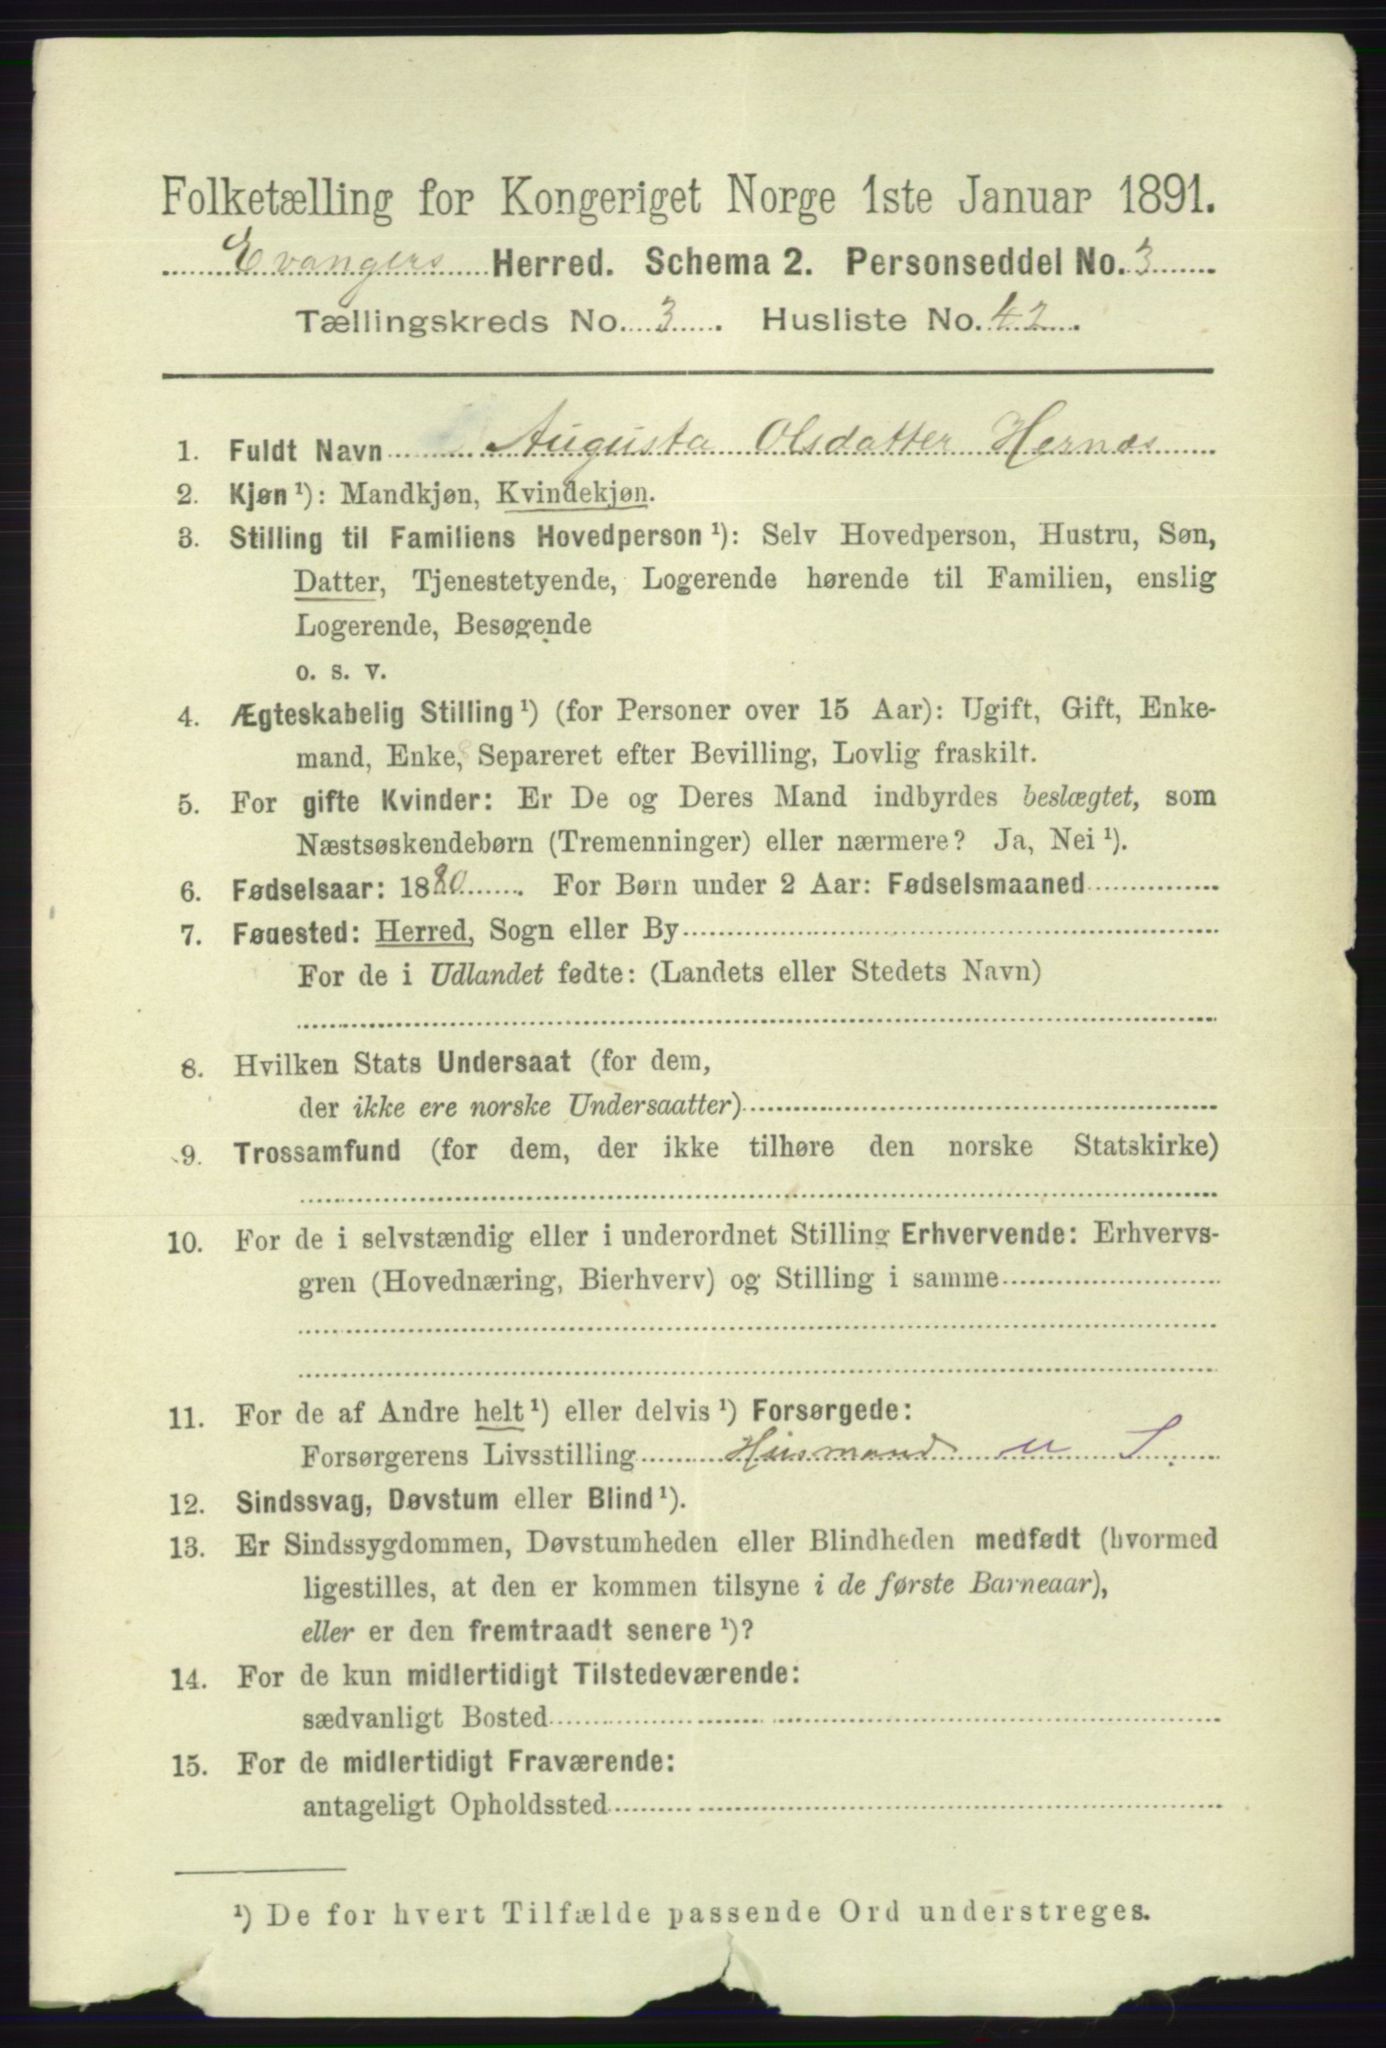 Folketælling for Kongeriget Norge 1ste Januar 1891.
Evangers Herred. Schema 2. Personseddel No. 3
Tællingskreds No. 3. Husliste No. 42.
1. Fuldt Navn Augusta Olsdatter Hernæs
2. Kjøn ¹): Mandkjøn, Kvindekjøn.
3. Stilling til Familiens Hovedperson ¹): Selv Hovedperson, Hustru, Søn,
Datter, Tjenestetyende, Logerende hørende til Familien, enslig
Logerende, Besøgende
o. s. v.
4. Ægteskabelig Stilling ¹) (for Personer over 15 Aar): Ugift, Gift, Enke-
mand, Enke, Separeret efter Bevilling, Lovlig fraskilt.
5. For gifte Kvinder: Er De og Deres Mand indbyrdes beslægtet, som
Næstsøskendebørn (Tremenninger) eller nærmere? Ja, Nei ¹).
6. Fødselsaar: 1880. For Børn under 2 Aar: Fødselsmaaned
7. Fødested: Herred, Sogn eller By
For de i Udlandet fødte: (Landets eller Stedets Navn)
8. Hvilken Stats Undersaat (for dem,
der ikke ere norske Undersaatter)
9. Trossamfund (for dem, der ikke tilhøre den norske Statskirke)
10. For de i selvstændig eller i underordnet Stilling Erhvervende: Erhvervs-
gren (Hovednæring, Bierhverv) og Stilling i samme
11. For de af Andre helt ¹) eller delvis ¹) Forsørgede:
Forsørgerens Livsstilling Husmand m J.
12. Sindssvag, Døvstum eller Blind ¹).
13. Er Sindssygdommen, Døvstumheden eller Blindheden medfødt (hvormed
ligestilles, at den er kommen tilsyne i de første Barneaar),
eller er den fremtraadt senere ¹)?
14. For de kun midlertidigt Tilstedeværende:
sædvanligt Bosted
15. For de midlertidigt Fraværende:
antageligt Opholdssted
¹) De for hvert Tilfælde passende Ord understreges.